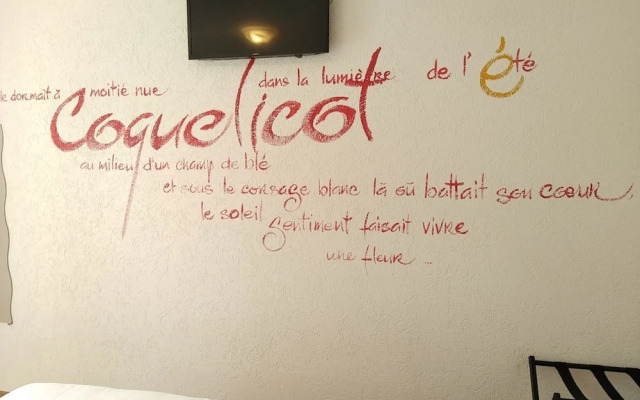 le dormait à moitié nue dans la lumière de l'été
Coquelicot
au milieu d'un champ de blé
et sous le corsage blanc là où battait son cœur,
le soleil
sentiment faisait vivre
une fleur ...